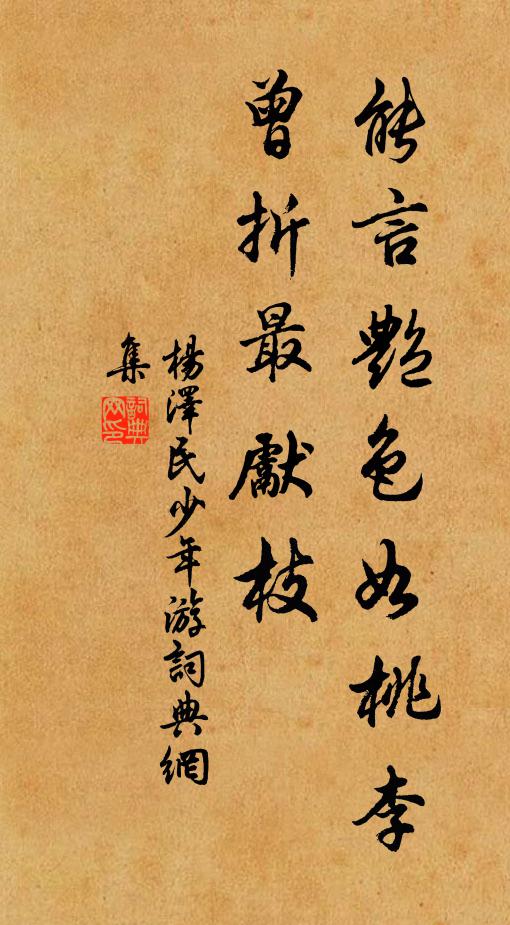 能言艷色如桃李
曾折最獻枝
楊澤民少年游詞典網
集
詞典
网印